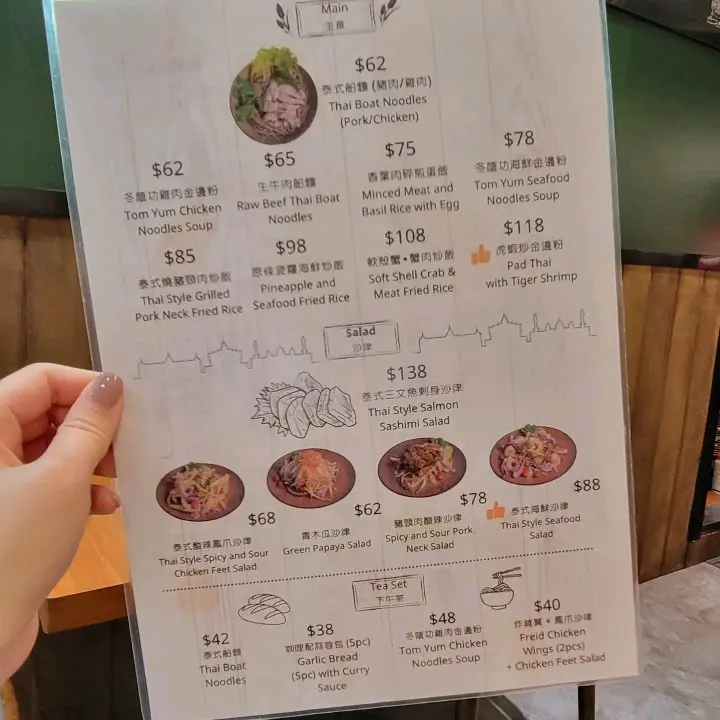 Main
主食
$62
泰式船麵 (豬肉/雞肉)
Thai Boat Noodles
(Pork/Chicken)
$62
冬蔭功雞肉金邊粉
Tom Yum Chicken
Noodles Soup
$65
生牛肉船麵
Raw Beef Thai Boat
Noodles
$75
香葉肉碎煎蛋飯
Minced Meat and
Basil Rice with Egg
$78
冬蔭功海鮮金邊粉
Tom Yum Seafood
Noodles Soup
$85
泰式燒豬頸肉炒飯
Thai Style Grilled
Pork Neck Fried Rice
$98
原條菠蘿海鮮炒飯
Pineapple and
Seafood Fried Rice
$108
軟殼蟹•蟹肉炒飯
Soft Shell Crab &
Meat Fried Rice
$118
虎蝦炒金邊粉
Pad Thai
with Tiger Shrimp
Salad
沙律
$138
泰式三文魚刺身沙律
Thai Style Salmon
Sashimi Salad
$68
泰式酸辣鳳爪沙律
Thai Style Spicy and Sour
Chicken Feet Salad
$62
青木瓜沙律
Green Papaya Salad
$78
豬頸肉酸辣沙律
Spicy and Sour Pork
Neck Salad
$88
泰式海鮮沙律
Thai Style Seafood
Salad
Tea Set
下午茶
$42
泰式船麵
Thai Boat
Noodles
$38
咖喱配蒜蓉包 (5pc)
Garlic Bread
(5pc) with Curry
Sauce
$48
冬蔭功雞肉金邊粉
Tom Yum Chicken
Noodles Soup
$40
炸雞翼 + 鳳爪沙律
Freid Chicken
Wings (2pcs)
+ Chicken Feet Salad